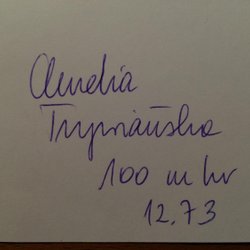 Amelia
100 m hr
12.73